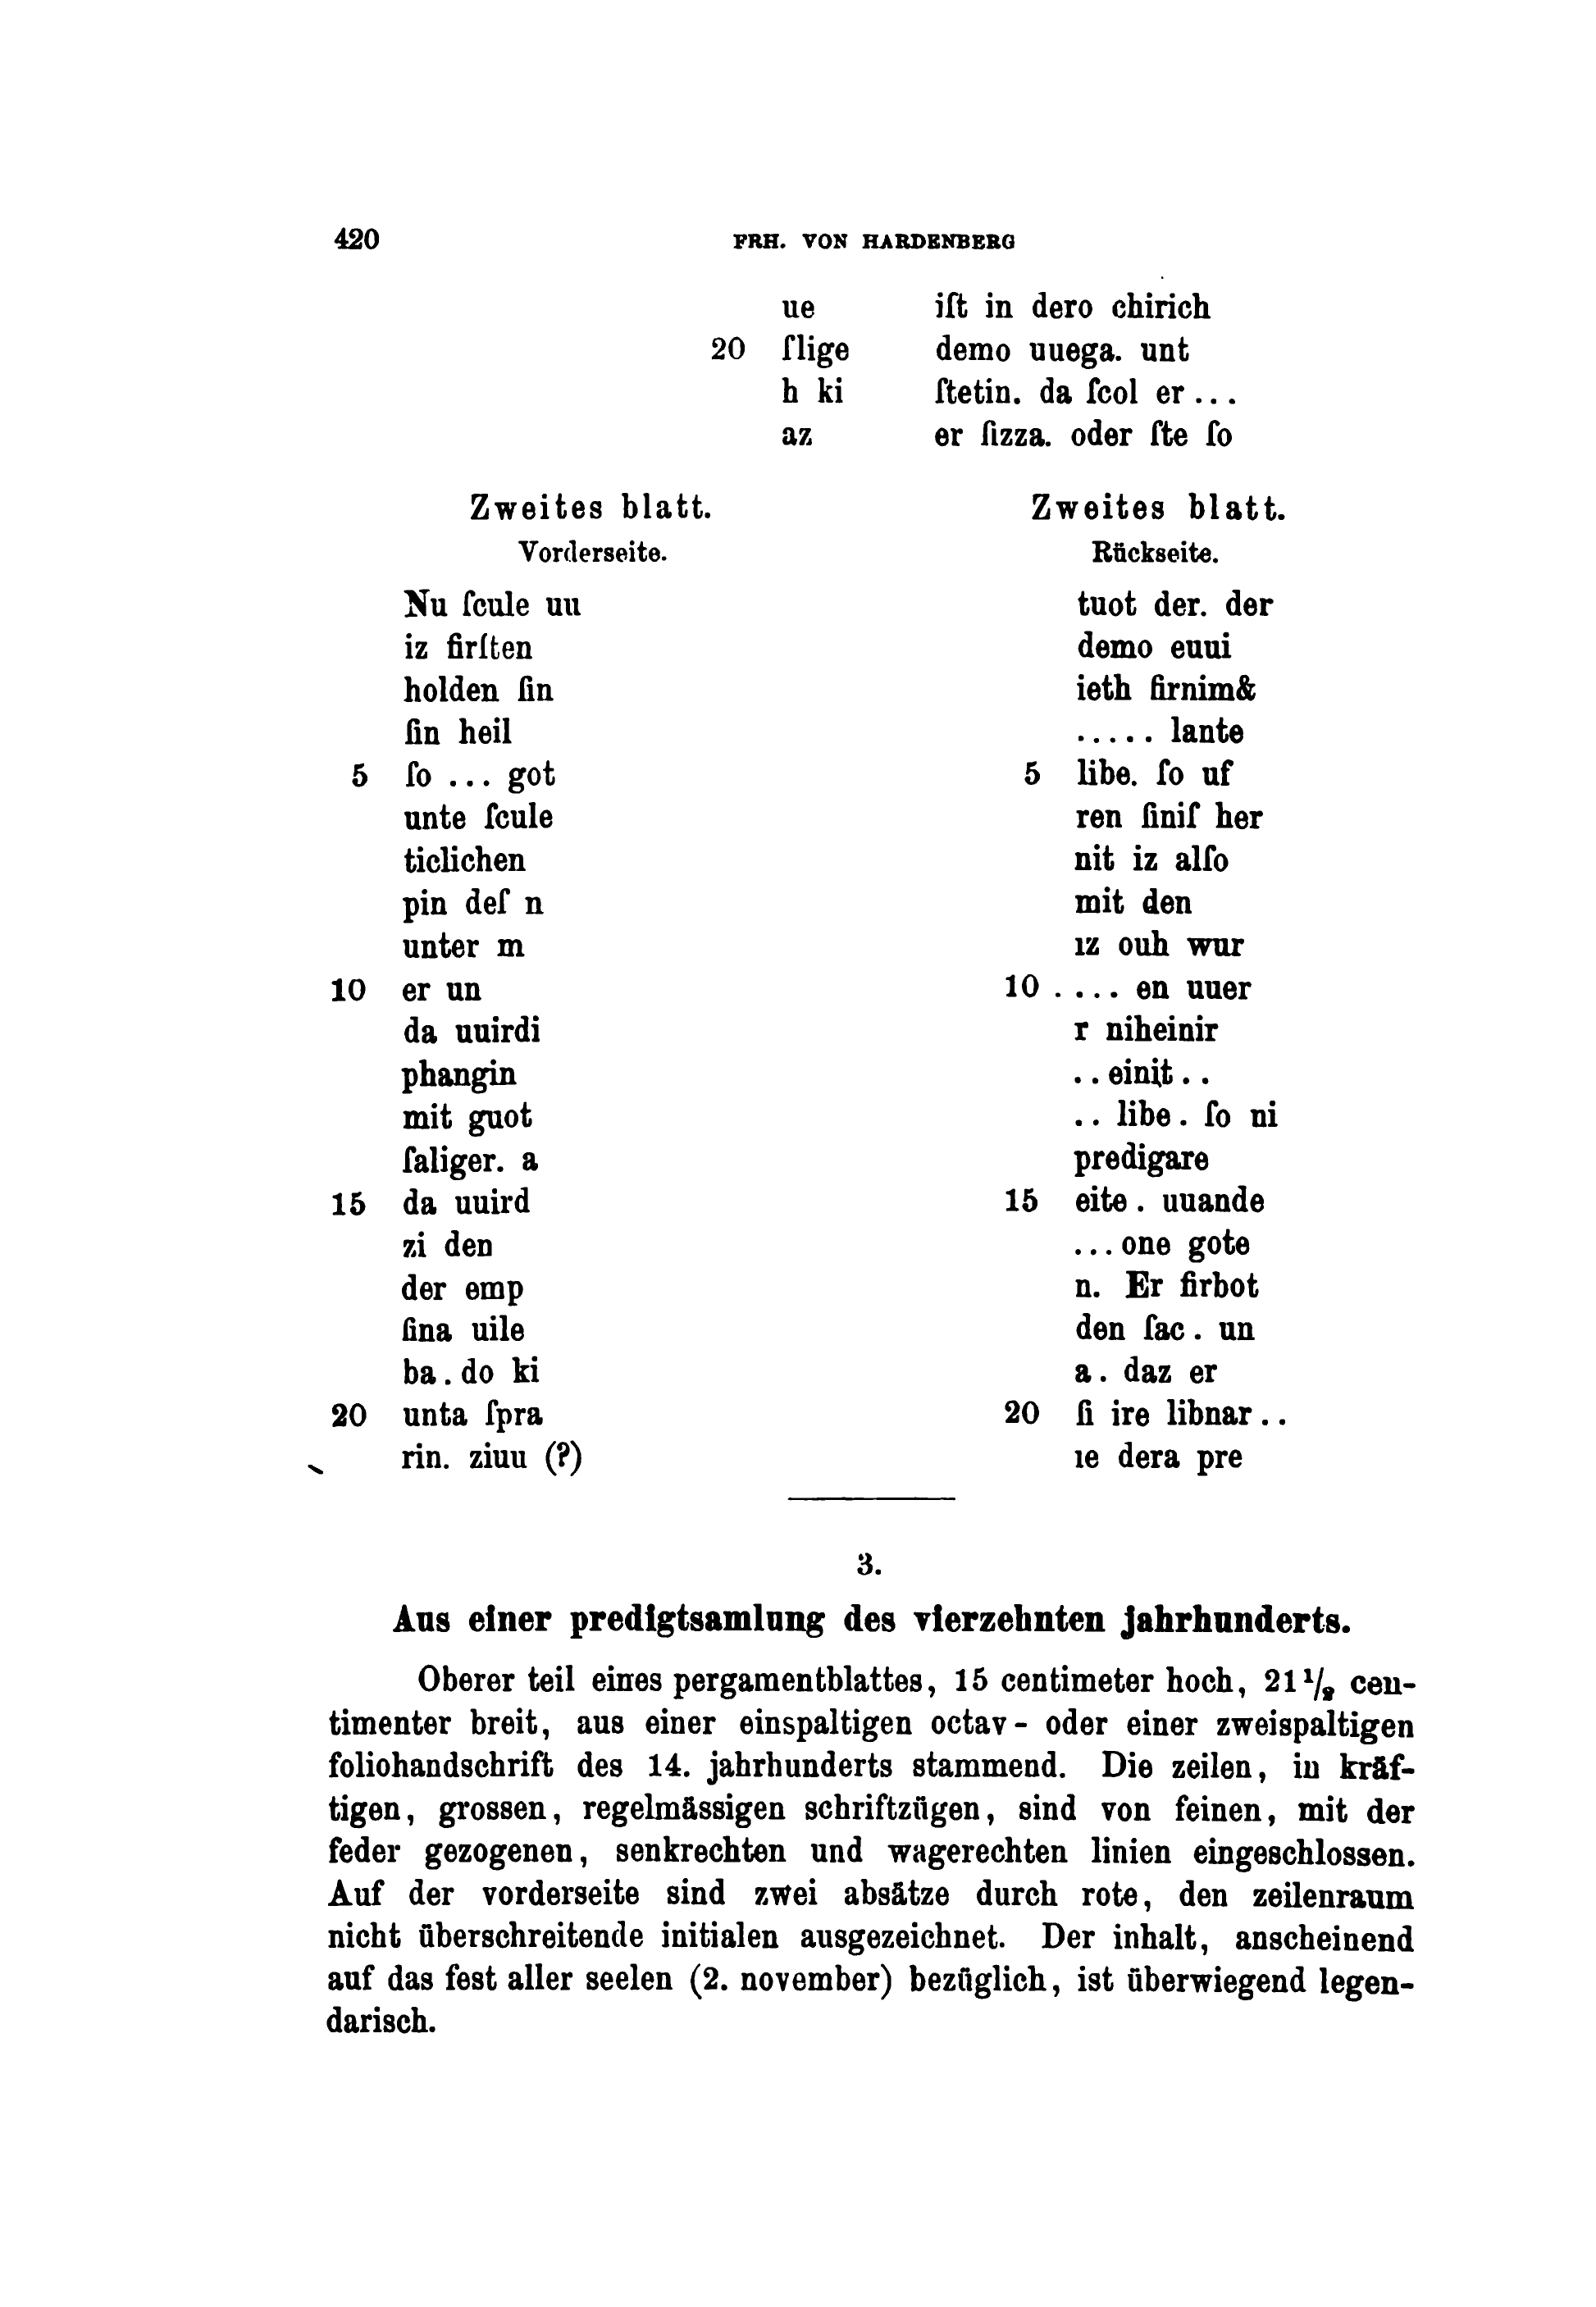 420 FRH. VON HARDENBERG
ue iſt in dero chirich
20 ſlige demo uuega. unt
h ki ſtetin. da ſcol er ...
az er ſizza. oder ſte ſo
Zweites blatt.
Vorderseite.
Nu ſcule uu
iz firſten
holden ſin
ſin heil
5 ſo ... got
unte ſcule
ticlichen
pin deſ n
unter m
10 er un
da uuirdi
phangin
mit guot
ſaliger. a
15 da uuird
zi den
der emp
ſina uile
ba. do ki
20 unta ſpra
rin. ziuu (?)
Zweites blatt.
Rückseite.
tuot der. der
demo euui
ieth firnim&
..... lante
5 libe. ſo uf
ren ſiniſ her
nit iz alſo
mit den
ız ouh wur
10 .... en uuer
r niheinir
.. einit ..
.. libe. ſo ni
predigare
15 eite. uuande
... one gote
n. Er firbot
den ſac. un
a. daz er
20 ſi ire libnar ..
ıe dera pre
3.
Aus einer predigtsamlung des vierzehnten jahrhunderts.
Oberer teil eines pergamentblattes, 15 centimeter hoch, 21 1/2 cen-
timenter breit, aus einer einspaltigen octav- oder einer zweispaltigen
foliohandschrift des 14. jahrhunderts stammend. Die zeilen, in kräf-
tigen, grossen, regelmässigen schriftzügen, sind von feinen, mit der
feder gezogenen, senkrechten und wagerechten linien eingeschlossen.
Auf der vorderseite sind zwei absätze durch rote, den zeilenraum
nicht überschreitende initialen ausgezeichnet. Der inhalt, anscheinend
auf das fest aller seelen (2. november) bezüglich, ist überwiegend legen-
darisch.